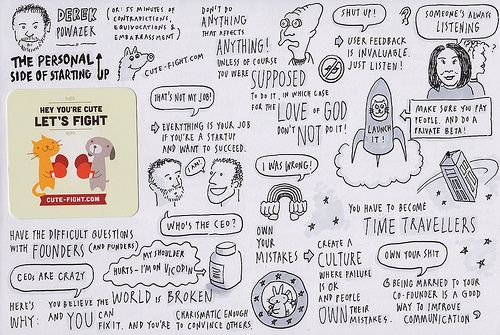 DEREK
POWAZEK
(OR: 55 MINUTES OF
CONTRADICTIONS,
EQUIVOCATIONS &
EMBARRASSMENT)
THE PERSONAL
SIDE OF STARTING UP
CUTE-FIGHT.COM
HEY YOU'RE CUTE
LET'S FIGHT
CUTE-FIGHT.COM
DON'T DO
ANYTHING
THAT AFFECTS
ANYTHING!
UNLESS OF COURSE
YOU WERE SUPPOSED
TO DO IT, IN WHICH CASE
FOR THE LOVE OF GOD
DON'T NOT DO IT!
SHUT UP!
USER FEEDBACK
IS INVALUABLE.
JUST LISTEN!
?
SOMEONE'S ALWAYS
LISTENING
?
MAKE SURE YOU PAY
PEOPLE. AND DO A
PRIVATE BETA!
LAUNCH
IT!
THAT'S NOT MY JOB!
EVERYTHING IS YOUR JOB
IF YOU'RE A STARTUP
AND WANT TO SUCCEED.
I AM!
WHO'S THE CEO?
HAVE THE DIFFICULT QUESTIONS
WITH FOUNDERS (AND FUNDERS)
CEOs ARE CRAZY
MY SHOULDER
HURTS - I'M ON VICODIN
HERE'S
WHY:
YOU BELIEVE THE WORLD IS BROKEN
AND YOU CAN
FIX IT. AND YOU'RE
CHARISMATIC ENOUGH
TO CONVINCE OTHERS.
I WAS WRONG!
OWN
YOUR
MISTAKES
CREATE A
CULTURE
WHERE FAILURE
IS OK
AND PEOPLE
OWN THEIR
MISTAKES.
YOU HAVE TO BECOME
TIME TRAVELLERS
OWN YOUR SHIT
BEING MARRIED TO YOUR
CO-FOUNDER IS A GOOD
WAY TO IMPROVE
COMMUNICATION